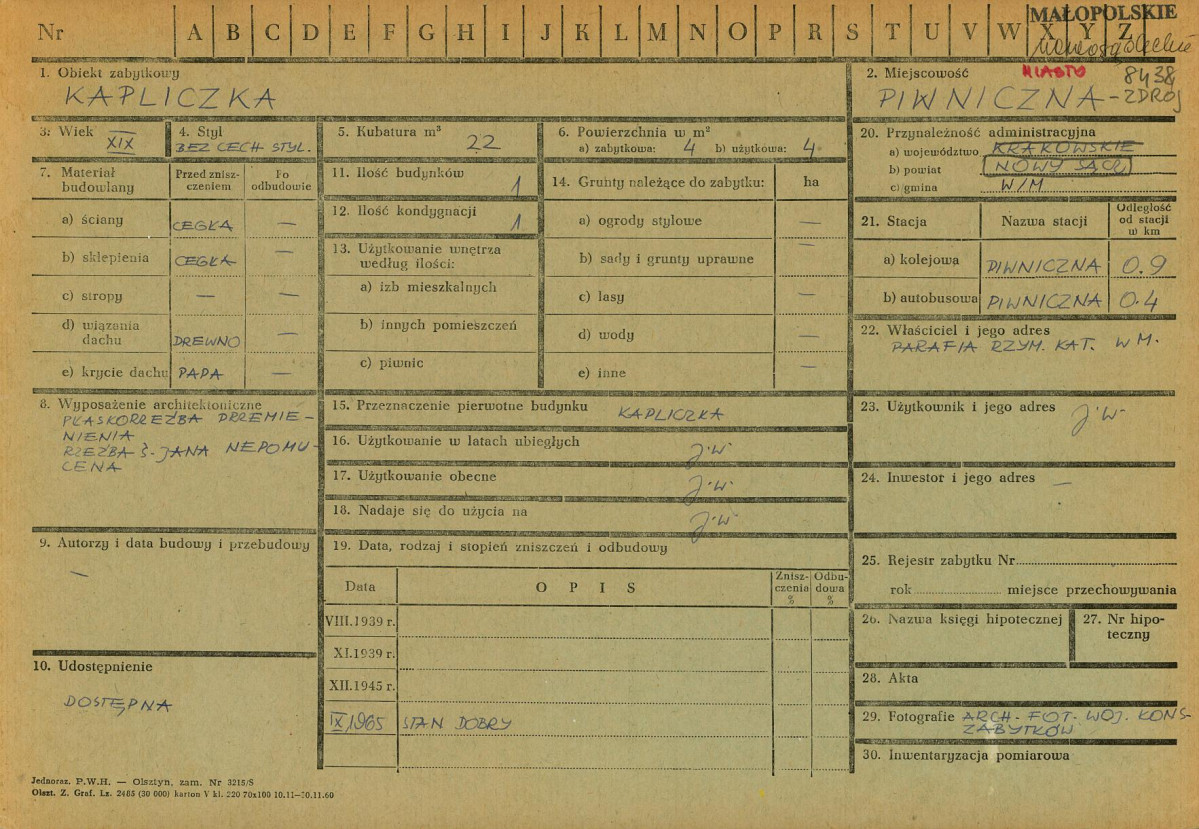 Nr A B C D E F G H I J K L M N O P R S T U V W X Y Z
MAŁOPOLSKIE
nowosądeckie
1. Obiekt zabytkowy
KAPLICZKA
2. Miejscowość
MIASTO 8438
PIWNICZNA-ZDRÓJ
3. Wiek
XIX
4. Styl
BEZ CECH STYL.
5. Kubatura m³
22
6. Powierzchnia w m²
a) zabytkowa: 4 b) użytkowa: 4
20. Przynależność administracyjna
a) województwo KRAKOWSKIE
b) powiat NOWY SĄCZ
c) gmina W/M
7. Materiał budowlany
Przed zniszczeniem
Po odbudowie
a) ściany CEGŁA —
b) sklepienia CEGŁA —
c) stropy — —
d) wiązania dachu DREWNO —
e) krycie dachu PAPA —
11. Ilość budynków 1
12. Ilość kondygnacji 1
13. Użytkowanie wnętrza
według ilości:
a) izb mieszkalnych
b) innych pomieszczeń
c) piwnic
14. Grunty należące do zabytku: ha
a) ogrody stylowe —
b) sady i grunty uprawne —
c) lasy —
d) wody —
e) inne —
21. Stacja Nazwa stacji Odległość od stacji w km
a) kolejowa PIWNICZNA 0.9
b) autobusowa PIWNICZNA 0.4
22. Właściciel i jego adres
PARAFIA RZYM. KAT. W M.
8. Wyposażenie architektoniczne
PŁASKORZEŹBA PRZEMIE-
NIENIA
RZEŹBA Ś. JANA NEPOMU-
CENA
15. Przeznaczenie pierwotne budynku KAPLICZKA
16. Użytkowanie w latach ubiegłych J.W.
17. Użytkowanie obecne J.W.
18. Nadaje się do użycia na J.W.
23. Użytkownik i jego adres J.W.
24. Inwestor i jego adres —
9. Autorzy i data budowy i przebudowy
—
19. Data, rodzaj i stopień zniszczeń i odbudowy
Data OPIS Zniszczenia % Odbudowa %
VIII.1939 r.
XI.1939 r.
XII.1945 r.
IX 1965 STAN DOBRY
25. Rejestr zabytku Nr
rok miejsce przechowywania
26. Nazwa księgi hipotecznej
27. Nr hipoteczny
10. Udostępnienie
DOSTĘPNA
28. Akta
29. Fotografie ARCH. FOT. WOJ. KONS.
ZABYTKÓW
30. Inwentaryzacja pomiarowa
Jednoraz. P.W.H. — Olsztyn, zam. Nr 3215/S
Olszt. Z. Graf. Lz. 2485 (30 000) karton V kl. 220 70x100 10.11—30.11.60